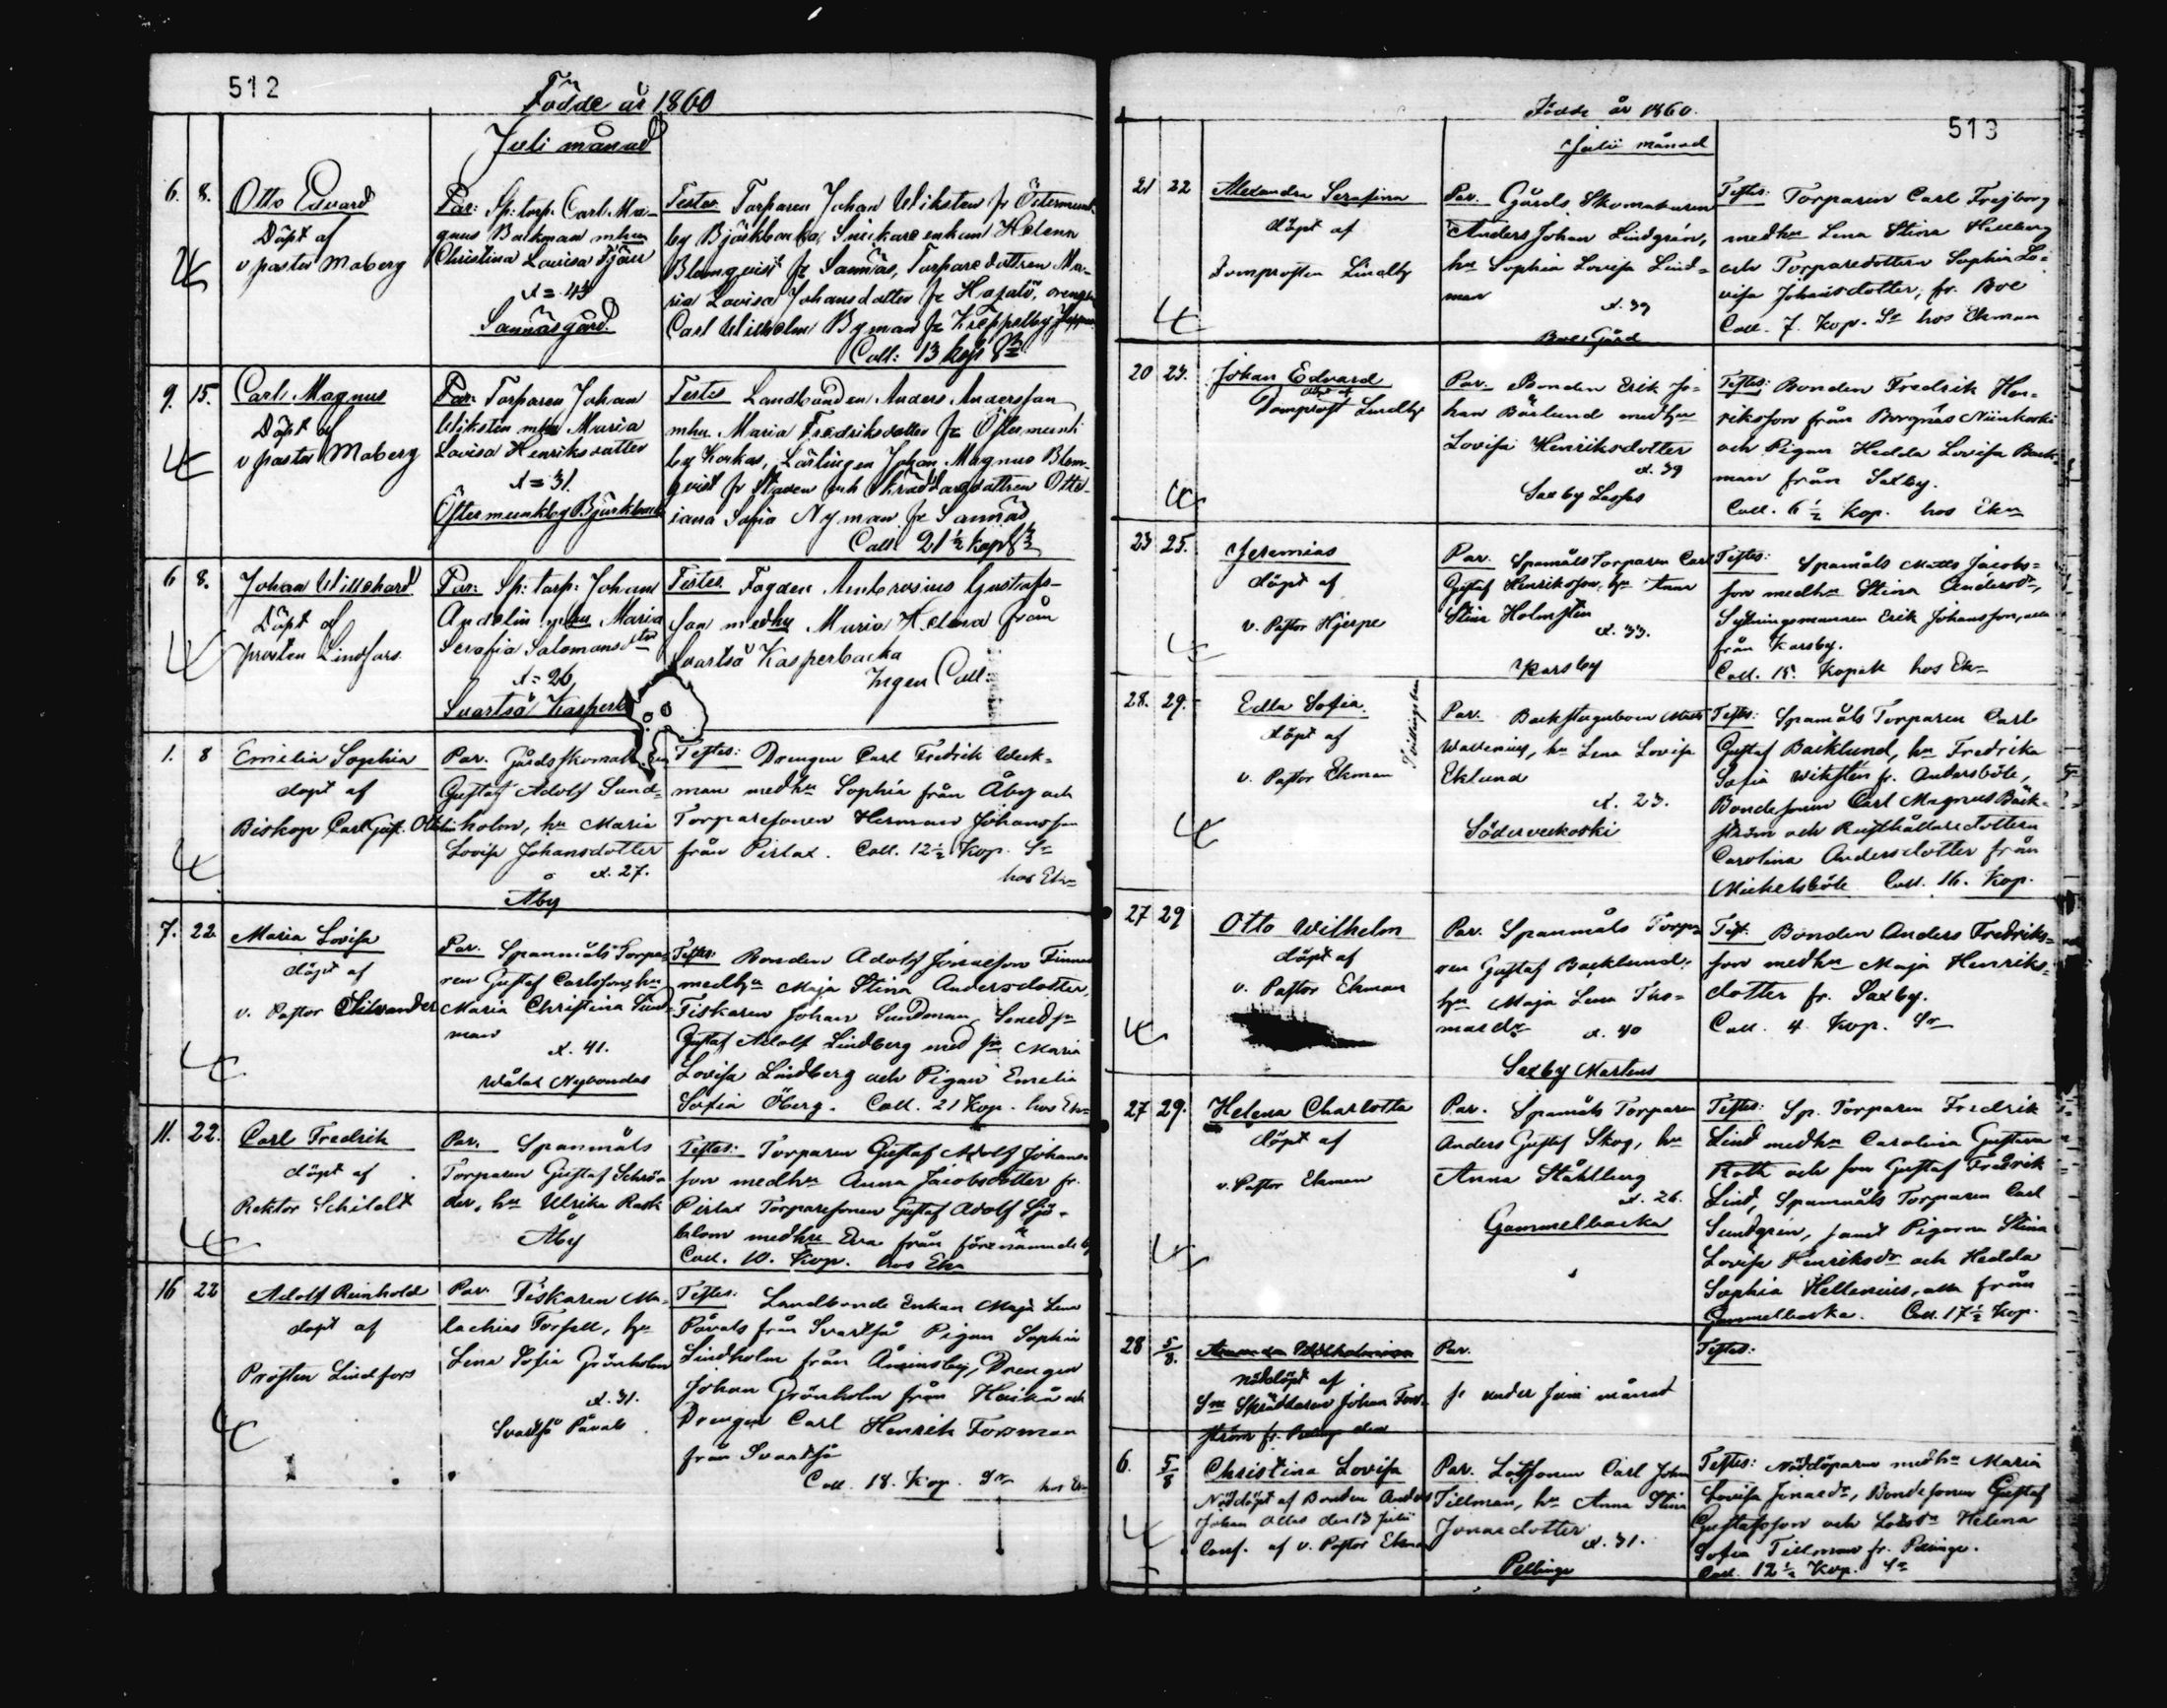 512
Födde år 1860
Juli månad
6. 8. Otto Edvard
Döpt af
v pastor Moberg
Par: Sp: torp. Carl Mag-
gnus Backman mhu
Christina Lovisa
x = 43
Sannäs gård.
Testes. Torparen Johan Wiksten fr Östermunk-
by Björkbacka, Snickare enkan Helena
Blomqvist fr Sannäs, Torpare dottren Ma-
ria Lovisa Johansdotter fr drengen
Carl Wilhelm Byman fr Kroppelby
Coll: 13 kop Sr
9. 15. Carl Magnus
Döpt af
v pastor Moberg
Par: Torparen Johan
Wiksten mhu Maria
Lovisa Henriksdotter
x = 31.
Östermunkby Björkbacka
Testes Landbonden Anders Andersson
mhu Maria Fredriksdotter fr Östermunk
by Korkas, Lärlingen Johan Magnus Blom-
qvist fr Staden och Skräddaredottren Otte-
iana Sofia Nyman fr Sannäs
Coll. 21 ½ kop Sr
6 8. Johan Willehard
Döpt af
prosten Lindfors
Par: Sp: torp: Johan
Andelin mhu Maria
Serafia Salomonsdter
x = 26
Svartså Kasperb
Testes. Fogden Ambrosius Gustafs-
son medhu Maria Helena från
Svartså Kasperbacka
Ingen Coll:
1. 8 Emelia Sophia
döpt af
Biskop Carl Gust. Ottelin
Par. Gårdsskomak
Gustaf Adolf Sund-
holm, hu Maria
Lovisa Johansdotter
x. 27.
Åby
Testes: Drengen Carl Fredrik Weck-
man medhu Sophia från Åby och
Torparesonen Herman Johansson
från Pirlax. Coll. 12 ½ Kop. Sr
hos Ekn
7. 22 Maria Lovisa
döpt af
v. Pastor Chilvander
Par. Spanmåls Torpa-
ren Gustaf Carlsson, hu
Maria Christina Sund-
man
x. 41.
Wålax Nybondas
Testes: Bonden Adolf Jonasson Finnas
medhu Maja Stina Andersdotter,
Fiskaren Johan Sundman, Smed
Gustaf Adolf Lindberg med Maria
Lovisa Lindberg och Pigan Emelia
Sofia Öberg. Coll. 21 Kop. hos Ekn
11. 22. Carl Fredrik
döpt af
Rektor Schildt
Par. Spanmåls
Torparen Gustaf Schrö-
der, hu Ulrika Rask
Åby
Testes: Torparen Gustaf Adolf Johans-
son medhu Anna Jacobsdotter fr.
Pirlax Torparesonen Gustaf Adolf Sjö-
blom medhu Eva från förenämnde by
Coll. 10. Kop. hos Ekn
16 22 Adolf Reinhold
döpt af
Prosten Lindfors
Par. Fiskaren Ma-
lachias Forsell, hu
Lena Sofia Grönholm
x. 31.
Svartså Påvals
Testes. Landbonde Enkan Maja Lena
Påvals från Svartså Pigan Sophia
Lindholm från Åminsby, Drengen
Johan Grönholm från Haikå och
Drengen Carl Henrik Forsman
från Svartså
Coll. 18. Kop. Sr hos Ekn
513
Födde år 1860.
Julii månad
21 22 Alexandra Serafina
döpt af
Domprosten Lindby
Par. Gårds Skomakaren
Anders Johan Lindgrén,
hu Sophia Lovisa Lind-
man
x. 39
Boe Gård
Testes: Torparen Carl Frejborg
medhu Lena Stina Hellberg
och Torparedottern Sophia Lo-
visa Johansdotter, fr. Boe
Coll. 7. Kop. Sr hos Ekman
20 23. Johan Edvard
döpt af
Domprost Lindby
Par. Bonden Erik Jo-
han Börlund medhu
Lovisa Henriksdotter
x. 39
Saxby Lasses
Testes: Bonden Fredrik Hen-
riksson från Borgnäs Niinikoski
och Pigan Hedda Lovisa Back-
man från Saxby.
Coll. 6 ½ Kop. hos Ekn
23 25. Jeremias
döpt af
v. Pastor Hjerpe
Par. Spamåls Torparen Carl
Gustaf Henriksson, hu Anna
Stina Holmsten
x. 33.
Karsby
Testes: Spamåls Matts Jacobs-
son medhu Stina Andersdr,
Sytningsmannen Erik Johansson, alla
från Karsby.
Coll. 15. Kopek hos Ekn
28. 29. Edla Sofia
döpt af
v. Pastor Ekman
Tvillingsbarn
Par. Backstuguboen Matts
Wallenius, hu Lena Lovisa
Eklund
x. 23.
Söderveckoski
Testes: Spamåls Torparen Carl
Gustaf Bäcklund, hu Fredrika
Sofia Wiksten fr. Andersböle,
Bondesonen Carl Magnus Bäck-
ström och Rusthållaredottern
Carolina Andersdotter från
Mickelsböle Coll. 16. Kop.
27 29 Otto Wilhelm
döpt af
v. Pastor Ekman
Par. Spanmåls Torpa-
ren Gustaf Backlund,
hu Maja Lena Tho-
masdr x. 40
Saxby Martens
Test. Bonden Anders Fredriks-
son medhu Maja Henriks-
dotter fr. Saxby.
Coll. 4 Kop. Sr
27 29. Helena Charlotta
döpt af
v. Pastor Ekman
Par. Spamåls Torparen
Anders Gustaf Skog, hu
Anna Ståhlberg
x. 26.
Gammelbacka
Testes: Sp. Torparen Fredrik
Lind medhu Carolina Gustava
Roth och son Gustaf Fredrik
Lind, Spanmåls Torparen Carl
Sundgrén, samt Pigorna Stina
Lovisa Henriksdr och Hedda
Sophia Hellenius, alla från
Gammelbacka. Coll. 17 ½ Kop.
28 5/8. Amanda Wilhelmina
nöddöpt af
Skräddaren Johan
ström fr.
Par.
se under Juni månad
Testes:
6. 5/8 Christina Lovisa
Nöddöpt af Bonden Anders
Johan den 13 Julii
Conf. af v. Pastor Ekman
Par. Lotssonen Carl Johan
Tillman, hu Anna Stina
Jonasdotter
x. 31.
Pellinge
Testes: Nöddöparen medhu Maria
Lovisa Jonasdr, Bondesonen Gustaf
Gustafsson och Lotsdr Helena
Sofia Tillman fr. Pellinge.
Coll. 12 ½ Kop. Sr